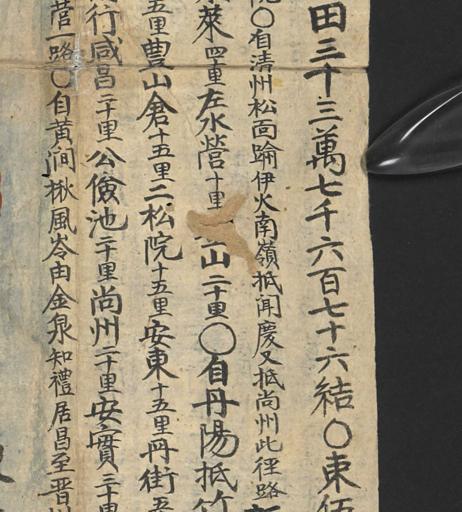 田三十三萬七千六百七十六結〇東
〇自清州松面踰伊火南嶺抵聞慶又抵尚州此徑路
萊四十里左水營十里山二十里〇自丹陽抵竹
五里豊山倉十五里二松院十五里安東十五里丹街五
行咸昌二十里公儉池二十里尚州二十里安實三十里
營一路〇自黄澗楸風岺由金泉知禮居昌至晋州